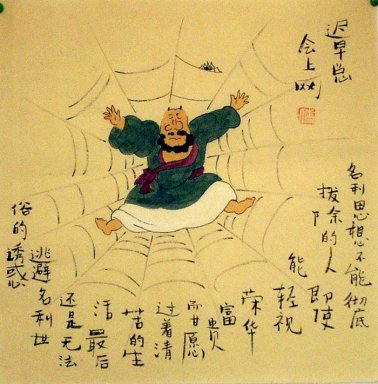 迟早总
会上网
名利思想不能彻底
拔除的人即使
能轻视
荣华
富贵
而甘愿
过着清
苦的生
活最后
还是无法
逃避名利世
俗的诱惑